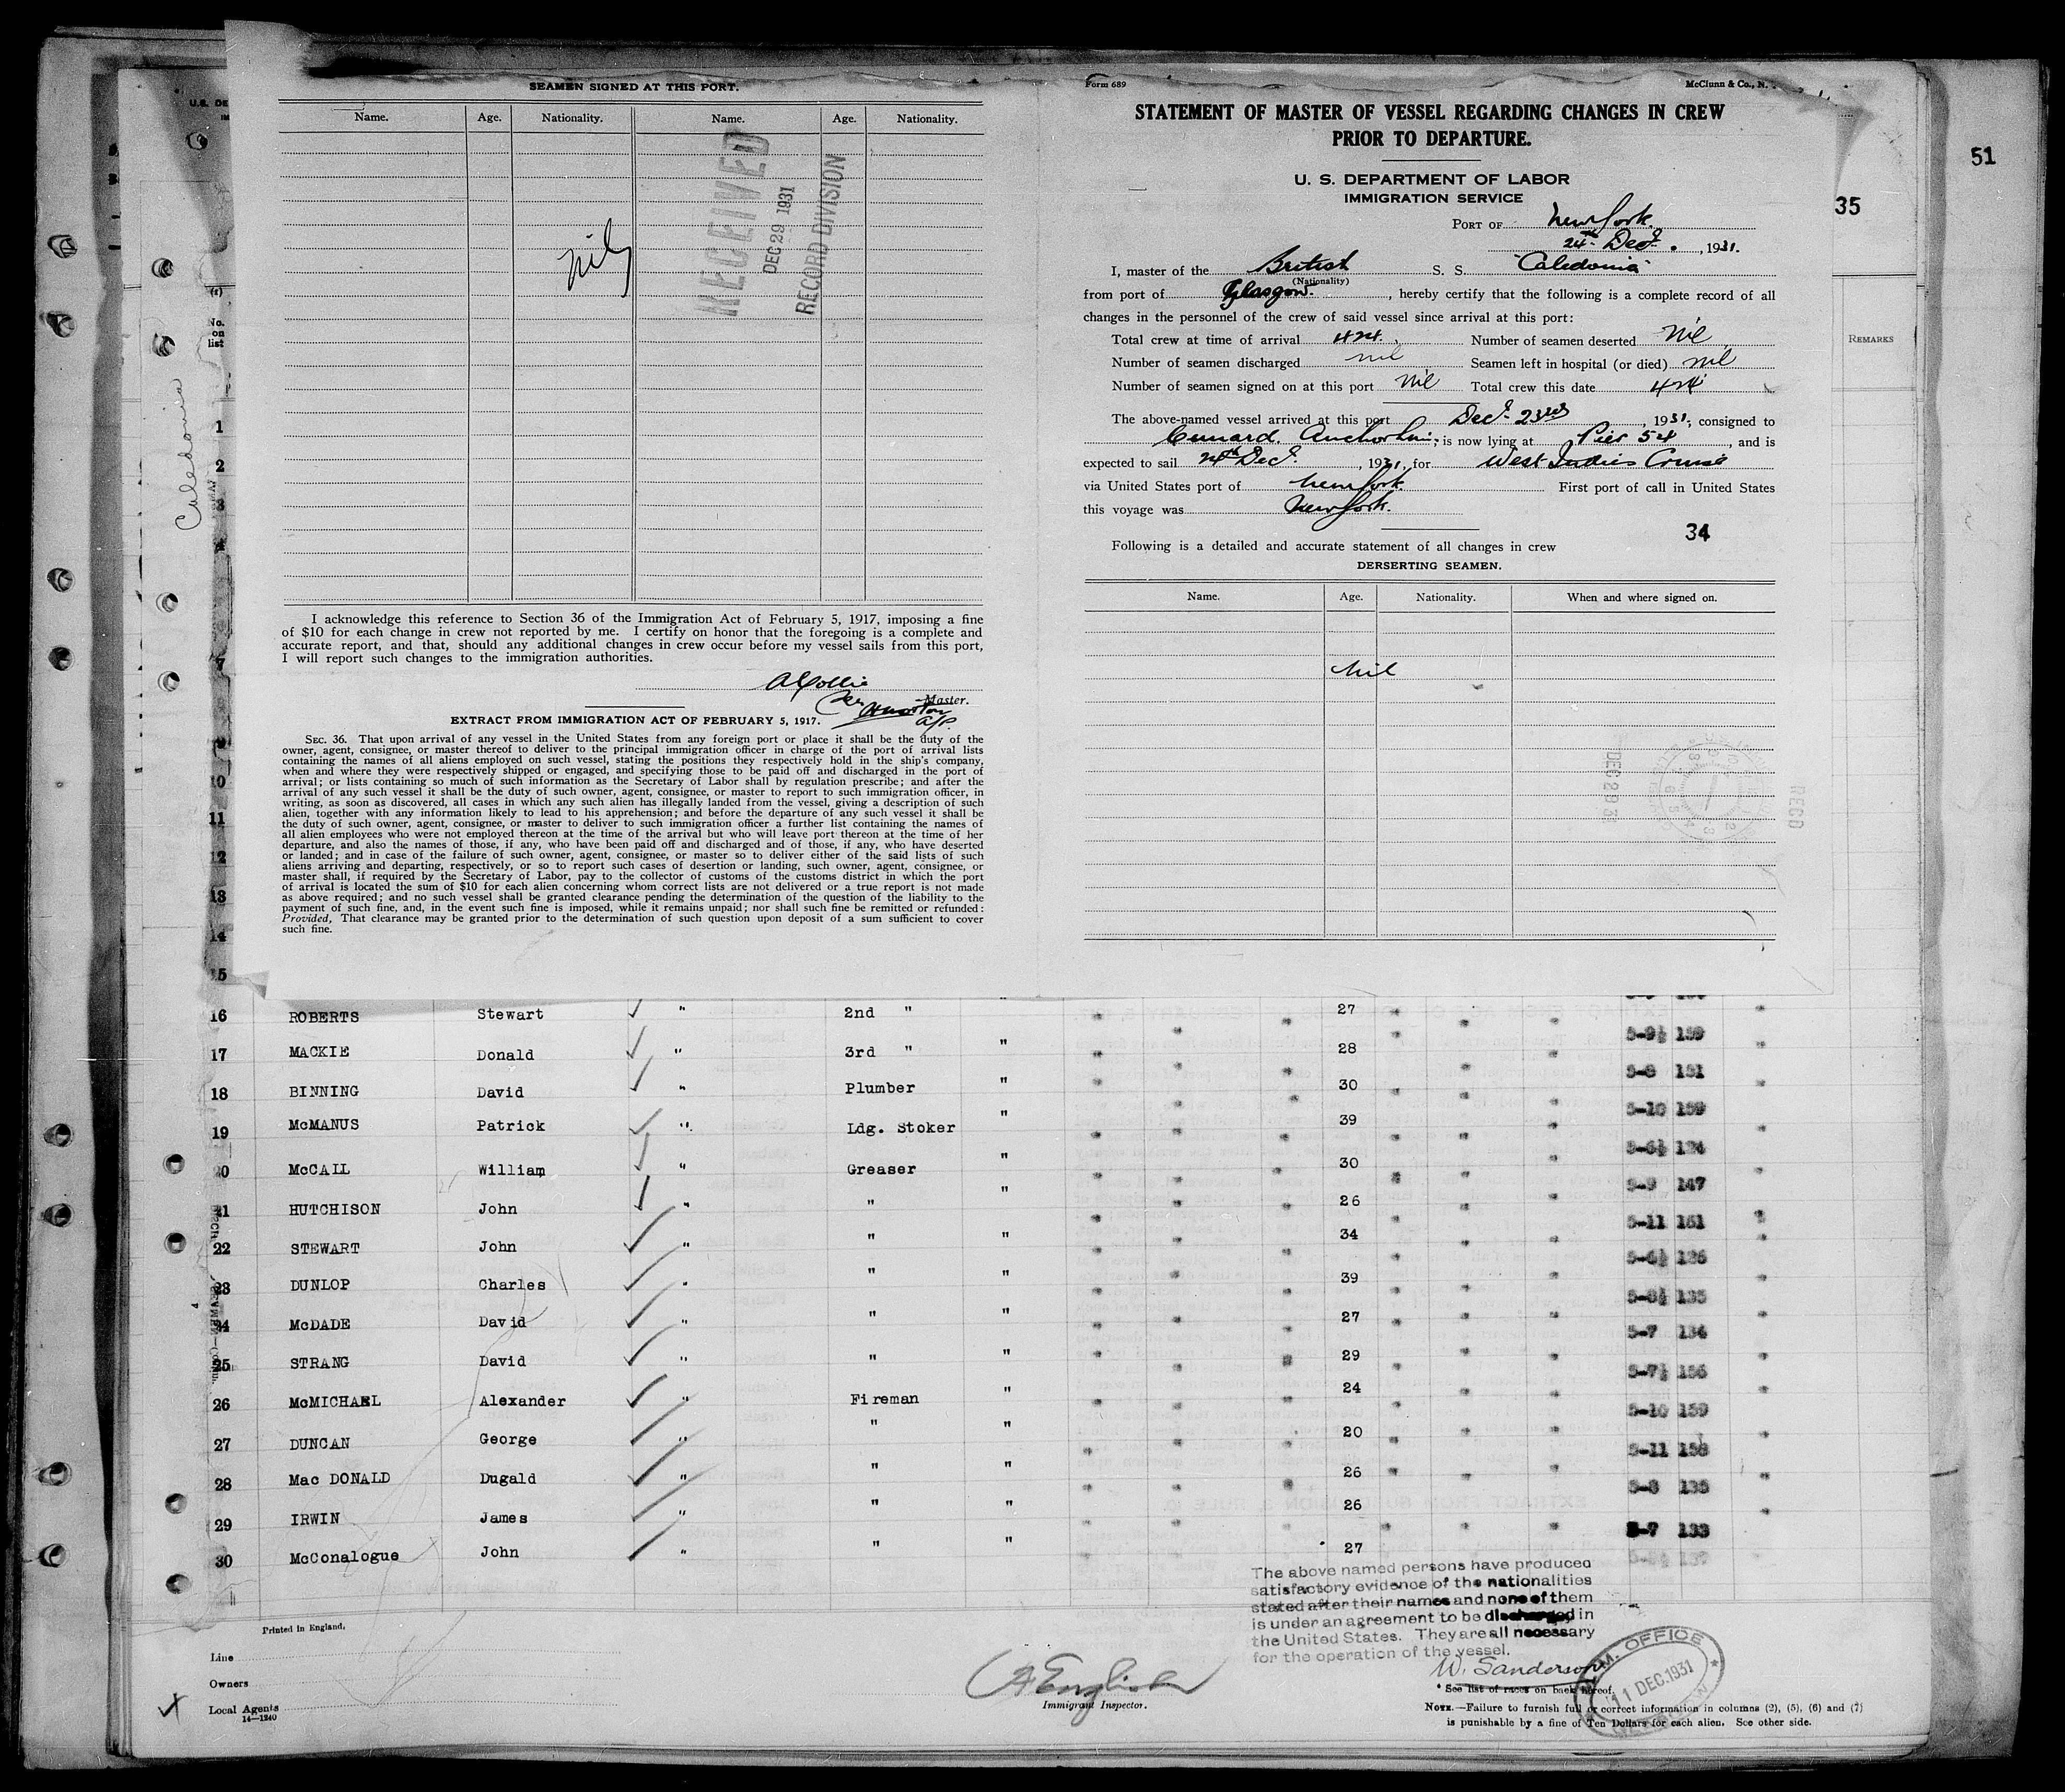 SEAMEN SIGNED AT THIS PORT.
Name. Age. Nationality. Name. Age. Nationality.
Nil
RECEIVED
DEC 29 1931
RECORD DIVISION
I acknowledge this reference to Section 36 of the Immigration Act of February 5, 1917, imposing a fine
of $10 for each change in crew not reported by me. I certify on honor that the foregoing is a complete and
accurate report, and that, should any additional changes in crew occur before my vessel sails from this port,
I will report such changes to the immigration authorities.
A Collie
Master.
EXTRACT FROM IMMIGRATION ACT OF FEBRUARY 5, 1917.
SEC. 36. That upon arrival of any vessel in the United States from any foreign port or place it shall be the duty of the
owner, agent, consignee, or master thereof to deliver to the principal immigration officer in charge of the port of arrival lists
containing the names of all aliens employed on such vessel, stating the positions they respectively hold in the ship's company,
when and where they were respectively shipped or engaged, and specifying those to be paid off and discharged in the port of
arrival; or lists containing so much of such information as the Secretary of Labor shall by regulation prescribe; and after the
arrival of any such vessel it shall be the duty of such owner, agent, consignee, or master to report to such immigration officer, in
writing, as soon as discovered, all cases in which any such alien has illegally landed from the vessel, giving a description of such
alien, together with any information likely to lead to his apprehension; and before the departure of any such vessel it shall be
the duty of such owner, agent, consignee, or master to deliver to such immigration officer a further list containing the names of
all alien employees who were not employed thereon at the time of the arrival but who will leave port thereon at the time of her
departure, and also the names of those, if any, who have been paid off and discharged and of those, if any, who have deserted
or landed; and in case of the failure of such owner, agent, consignee, or master so to deliver either of the said lists of such
aliens arriving and departing, respectively, or so to report such cases of desertion or landing, such owner, agent, consignee, or
master shall, if required by the Secretary of Labor, pay to the collector of customs of the customs district in which the port
of arrival is located the sum of $10 for each alien concerning whom correct lists are not delivered or a true report is not made
as above required; and no such vessel shall be granted clearance pending the determination of the question of the liability to the
payment of such fine, and, in the event such fine is imposed, while it remains unpaid; nor shall such fine be remitted or refunded:
Provided, That clearance may be granted prior to the determination of such question upon deposit of a sum sufficient to cover
such fine.
Form 689 McClunn & Co., N.
STATEMENT OF MASTER OF VESSEL REGARDING CHANGES IN CREW
PRIOR TO DEPARTURE.
U. S. DEPARTMENT OF LABOR
IMMIGRATION SERVICE
PORT OF New York.
24th Dec., 1931.
I, master of the British S. S. "Caledonia"
(Nationality)
from port of Glasgow., hereby certify that the following is a complete record of all
changes in the personnel of the crew of said vessel since arrival at this port:
Total crew at time of arrival 424. Number of seamen deserted Nil
Number of seamen discharged nil Seamen left in hospital (or died) nil
Number of seamen signed on at this port Nil Total crew this date 424
The above-named vessel arrived at this port Dec. 23rd, 1931, consigned to
Cunard. Anchor Line; is now lying at Pier 54, and is
expected to sail 24th Dec., 1931, for West Indies Cruise
via United States port of New York. First port of call in United States
this voyage was New York.
34
Following is a detailed and accurate statement of all changes in crew
DERSERTING SEAMEN.
Name. Age. Nationality. When and where signed on.
Nil
RECD
51
35
REMARKS
Caledonia
No.
on
list
1
2
3
4
7
9
10
11
12
13
14
15
16 ROBERTS Stewart " 2nd " 27
17 MACKIE Donald " 3rd " " 28 5-9½ 159
18 BINNING David " Plumber " 30 5-8 151
19 McMANUS Patrick " Ldg. Stoker " 39 5-10 159
20 McCALL William " Greaser " 30 5-6½ 124
21 HUTCHISON John " " " 26 5-9 147
22 STEWART John " " " 34 5-11 151
23 DUNLOP Charles " " " 39 5-6½ 126
24 McDADE David " " " 27 5-8½ 135
25 STRANG David " " " 29 5-7 134
26 McMICHAEL Alexander " Fireman " 24 5-7½ 156
27 DUNCAN George " " " 20 5-10 159
28 Mac DONALD Dugald " " " 26 5-11 158
29 IRWIN James " " " 26 5-8 135
30 McConalogue John " " " 27 5-7 133
Printed in England.
Line
Owners
Local Agents
14—1240
A English
Immigrant Inspector.
The above named persons have produced
satisfactory evidence of the nationalities
stated after their names and none of them
is under an agreement to be discharged in
the United States. They are all necessary
for the operation of the vessel.
W. Sanderson
* See list of races on back hereof.
NOTE.—Failure to furnish full or correct information in columns (2), (5), (6) and (7)
is punishable by a fine of Ten Dollars for each alien. See other side.
OFFICE
11 DEC. 1931